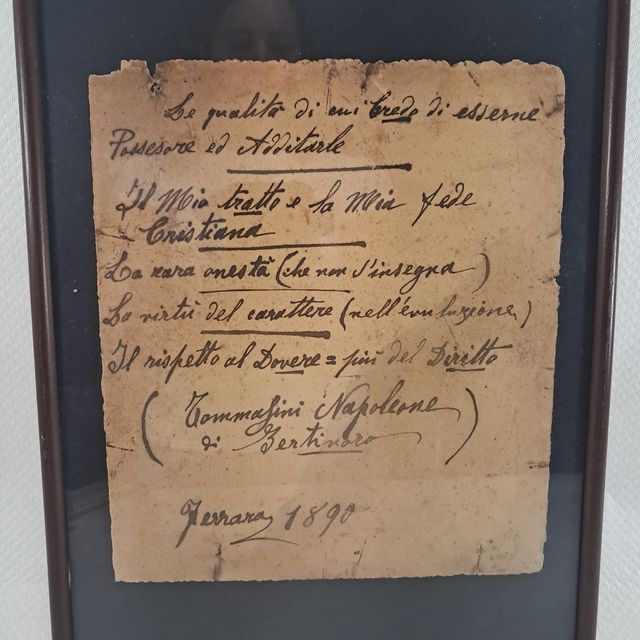 Le qualità di cui Credo di esserne
Possesore ed Additarle
Il Mio tratto e la Mia fede
Cristiana
La rara onestà (che non s'insegna)
La virtù del carattere (nell'evuluzione)
Il rispetto al Dovere = più del Diritto
(Tommasini Napoleone
di Bertinoro)
Ferrara 1890